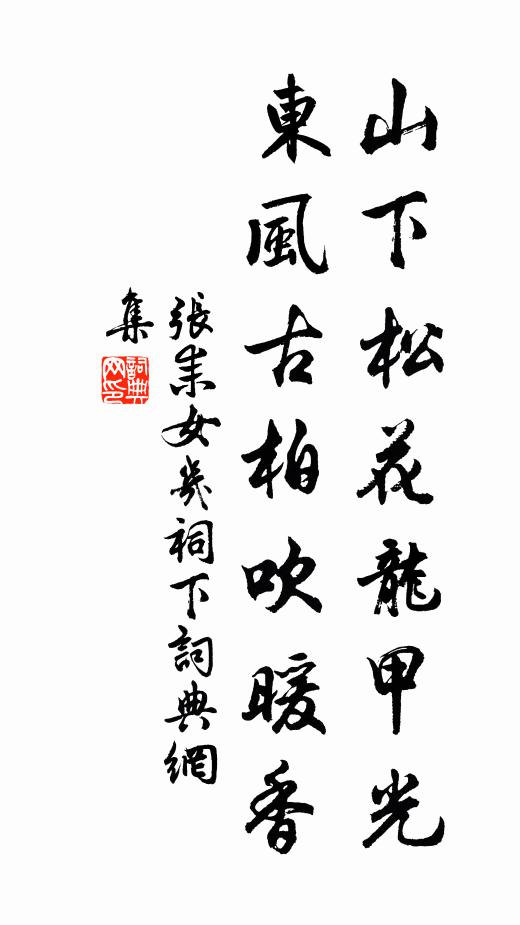 山下松花龍甲光
東風古柏吹暖香
張耒女幾祠下詞典網
集
詞典網印